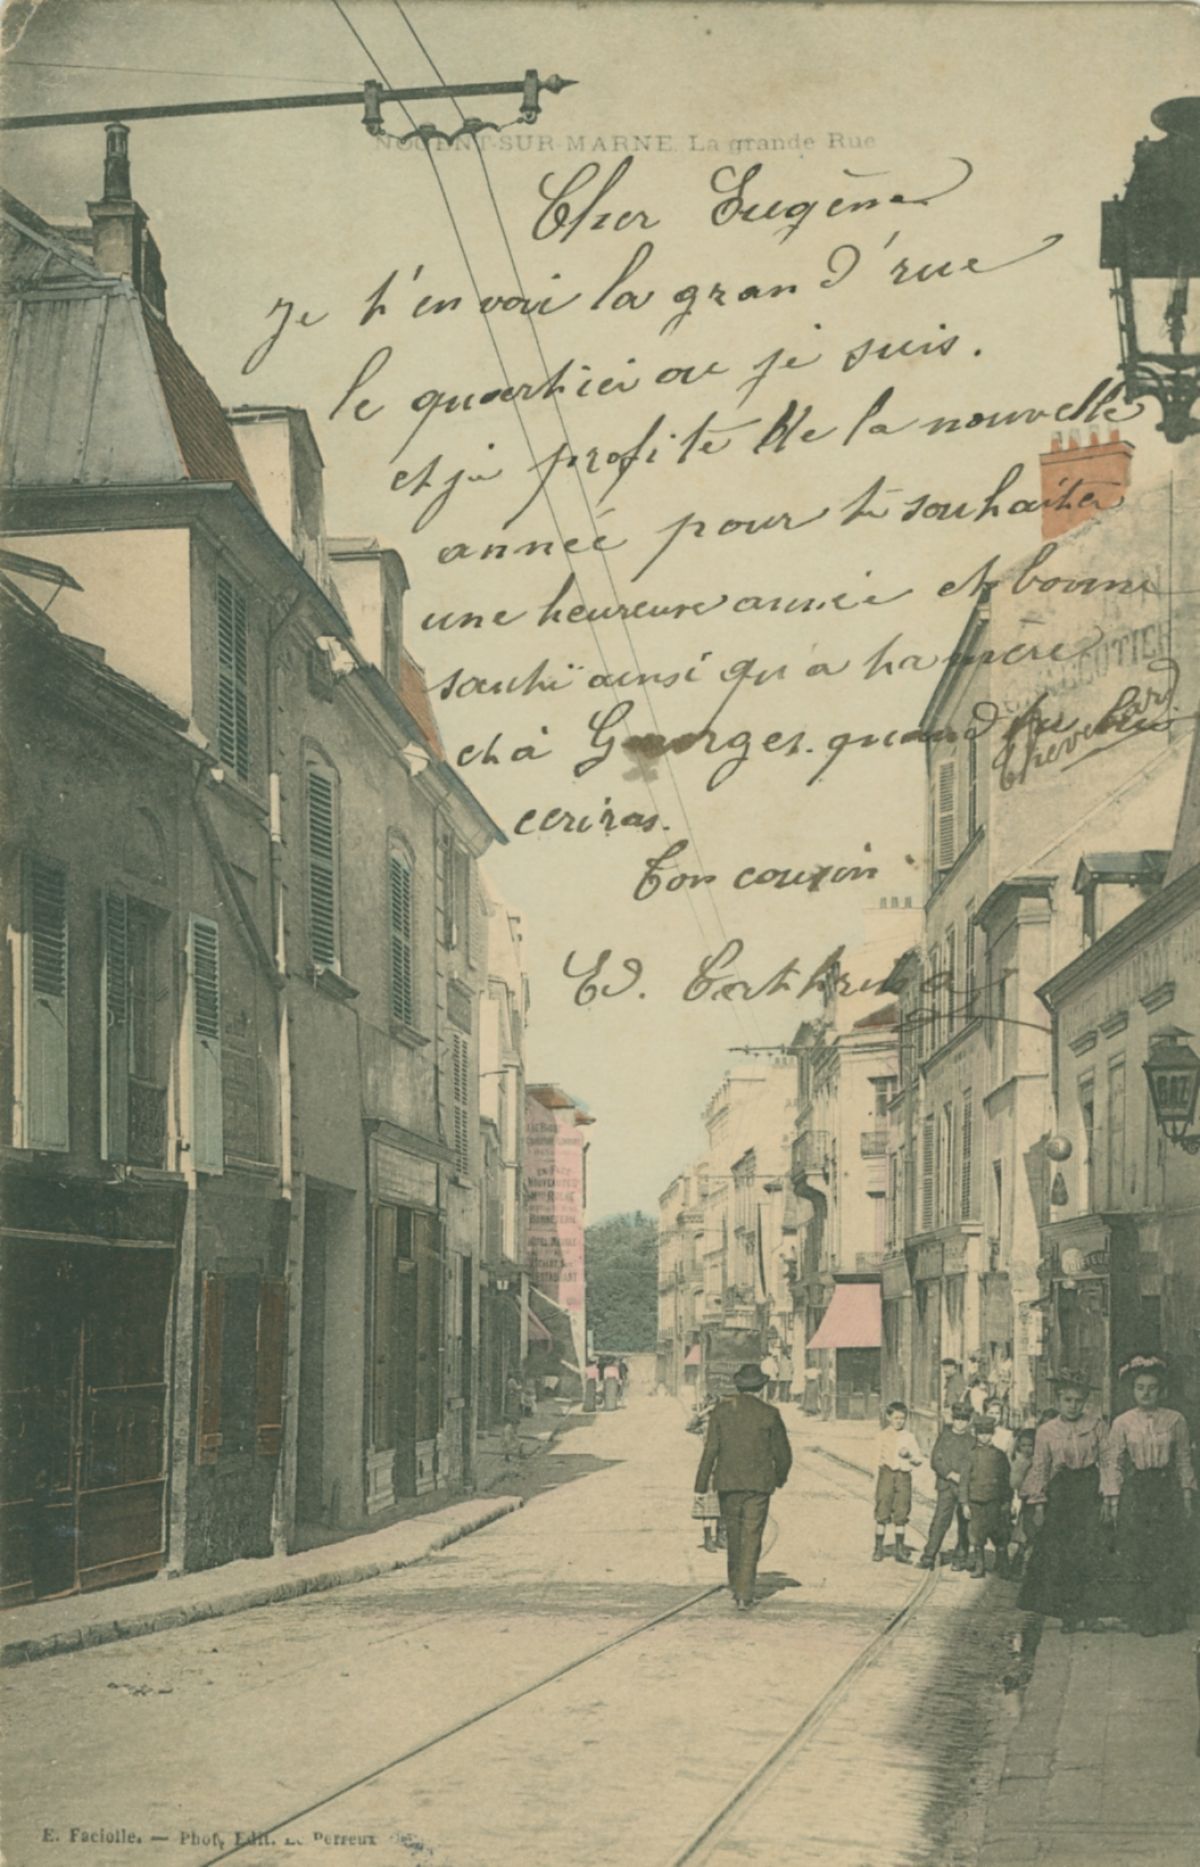 NOGENT-SUR-MARNE. La grande Rue
Cher Eugène
Je t'envoi la grand'rue
le quartier ou je suis.
et je profite de la nouvelle
année pour te souhaiter
une heureuse année et bonne
santé ainsi qu'a ta mère
et à Georges. quand tu lui
ecriras.
Ton cousin
Ed.
GAZ
E. Faciolle. — Phot, Edit. Le Perreux